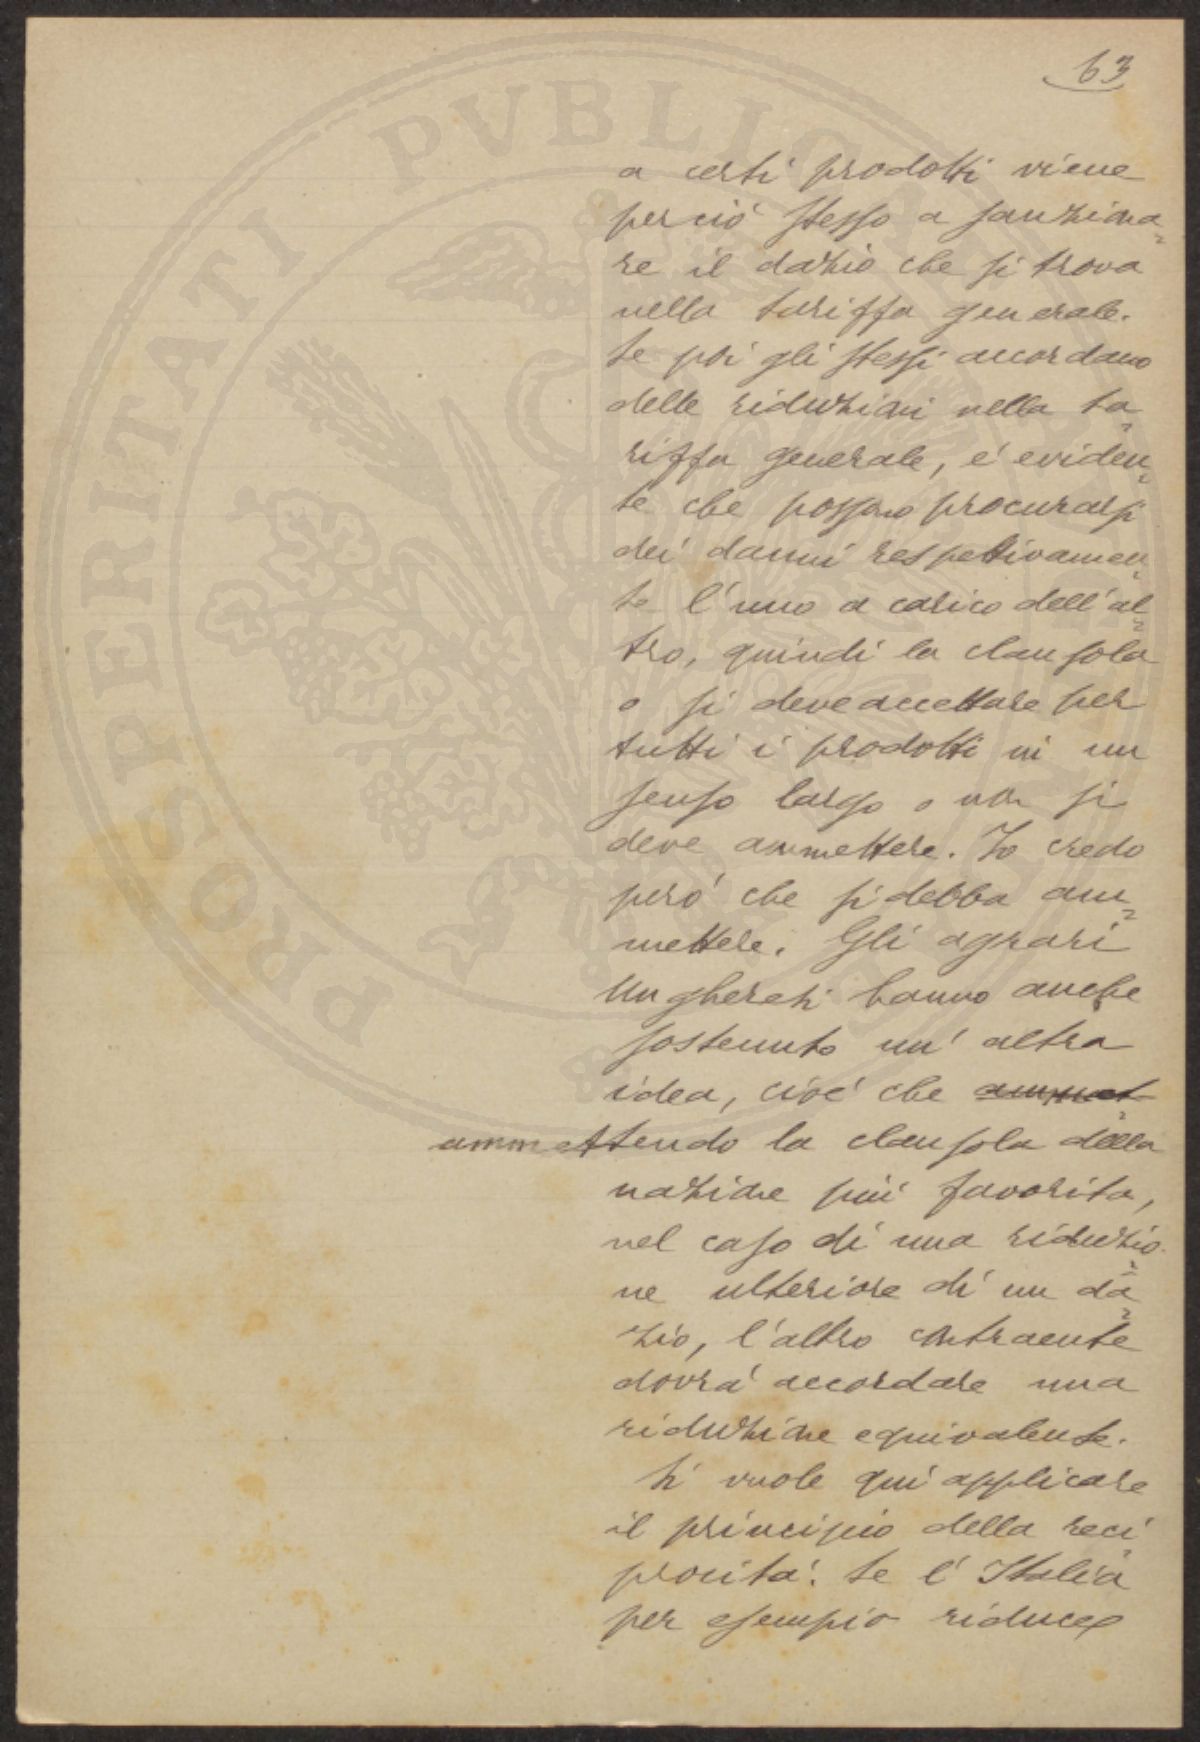 63
a certi prodotti viene
perciò stesso a sanziona=
re il dazio che si trova
nella tariffa generale.
Se poi gli stessi accordano
delle riduzioni nella ta=
riffa generale, é eviden=
te che possono procurarsi
dei danni respettivamen=
te l'uno a carico dell'al=
tro, quindi la clausola
o si deve accettare per
tutti i prodotti in un
senso largo o non si
deve ammettere. Io credo
peró che si debba am=
mettere. Gli agrari
Ungheresi hanno anche
sostenuto un' altra
idea, cioé che ammet=
ammettendo la clausola della
nazione piú favorita,
nel caso di una riduzio=
ne ulteriore di un da=
zio, l'altro contraente
dovrá accordare una
riduzione equivalente.
Si vuole qui applicare
il principio della reci=
procitá. Se l'Italia
per esempio riduce
PROSPERITATI PVBLICAE